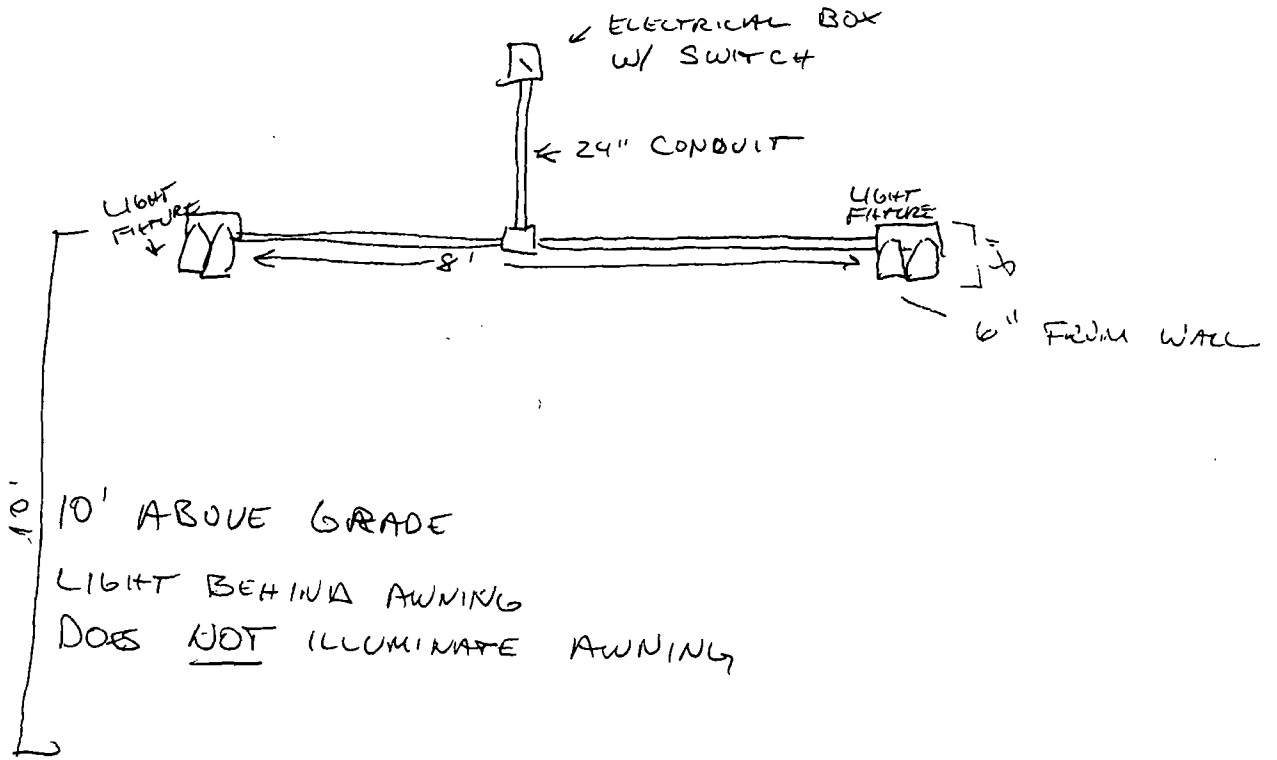 ELECTRICAL BOX
W/ SWITCH
24" CONDUIT
LIGHT
FIXTURE
LIGHT
FIXTURE
8'
6" FROM WALL
10'
10' ABOVE GRADE
LIGHT BEHIND AWNING
DOES NOT ILLUMINATE AWNING